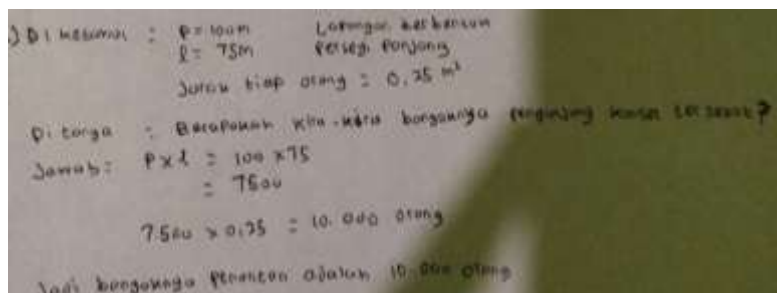 .) Diketahui : P = 100m Lapangan berbentuk
l = 75m Persegi Panjang
Jarak tiap orang = 0,75 m²
Ditanya : Berapakah kira-kira banyaknya pengunjung konser tersebut?
Jawab : P x l = 100 x 75
= 7500
7.500 x 0,75 = 10.000 orang
Jadi banyaknya penonton adalah 10.000 orang